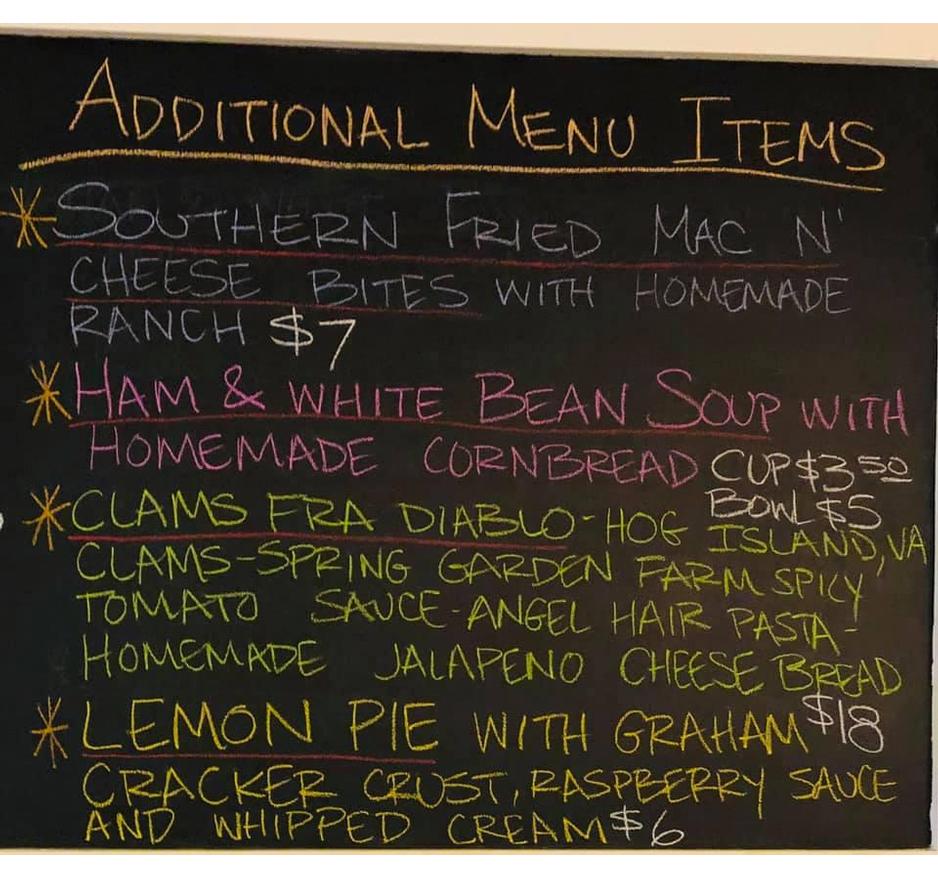 ADDITIONAL MENU ITEMS
* SOUTHERN FRIED MAC N'
CHEESE BITES WITH HOMEMADE
RANCH $7
* HAM & WHITE BEAN SOUP WITH
HOMEMADE CORNBREAD CUP $3.50
BOWL $5
* CLAMS FRA DIABLO-HOG ISLAND, VA
CLAMS-SPRING GARDEN FARM SPICY
TOMATO SAUCE-ANGEL HAIR PASTA-
HOMEMADE JALAPENO CHEESE BREAD
$18
* LEMON PIE WITH GRAHAM
CRACKER CRUST, RASPBERRY SAUCE
AND WHIPPED CREAM $6